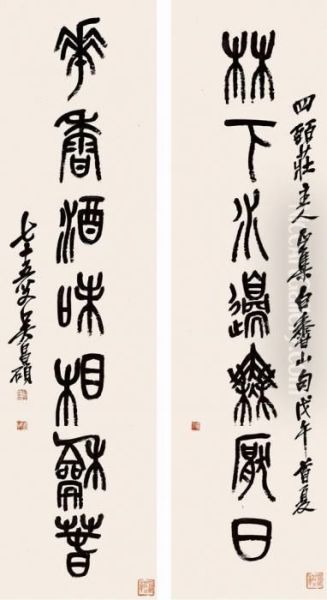 林下水邊無厭日
四莊主人正集白香山句戊午首夏
華香酒味相龢萅
七十五叟吳昌碩